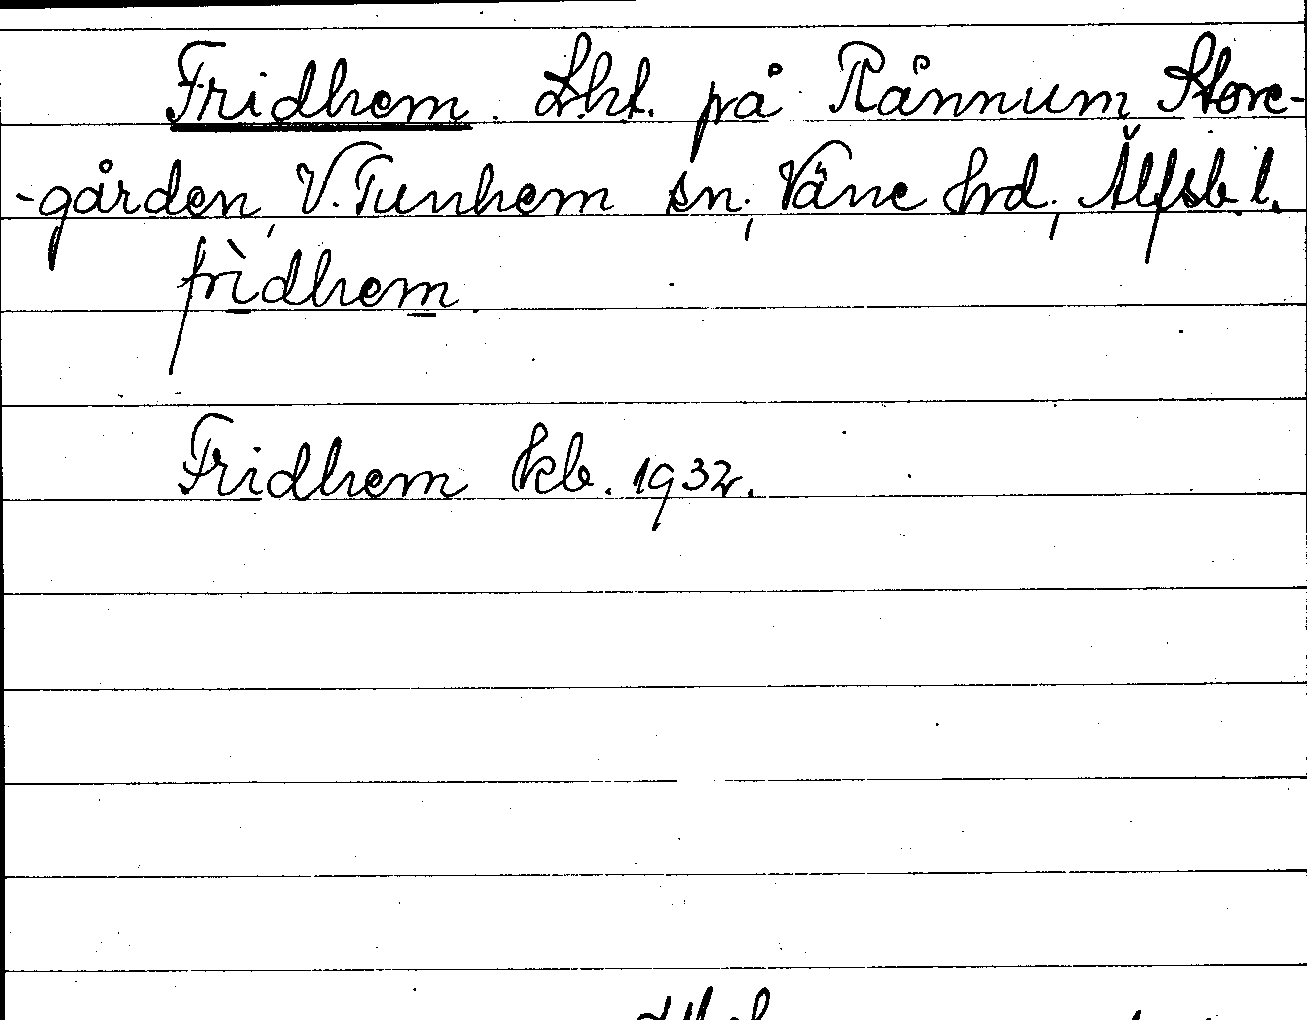 Fridhem. Lht. på Rånnum Store-
-gården, V. Tunhem sn., Väne hrd., Älfsb. l.
frìdhem.
Fridhem kb. 1932.